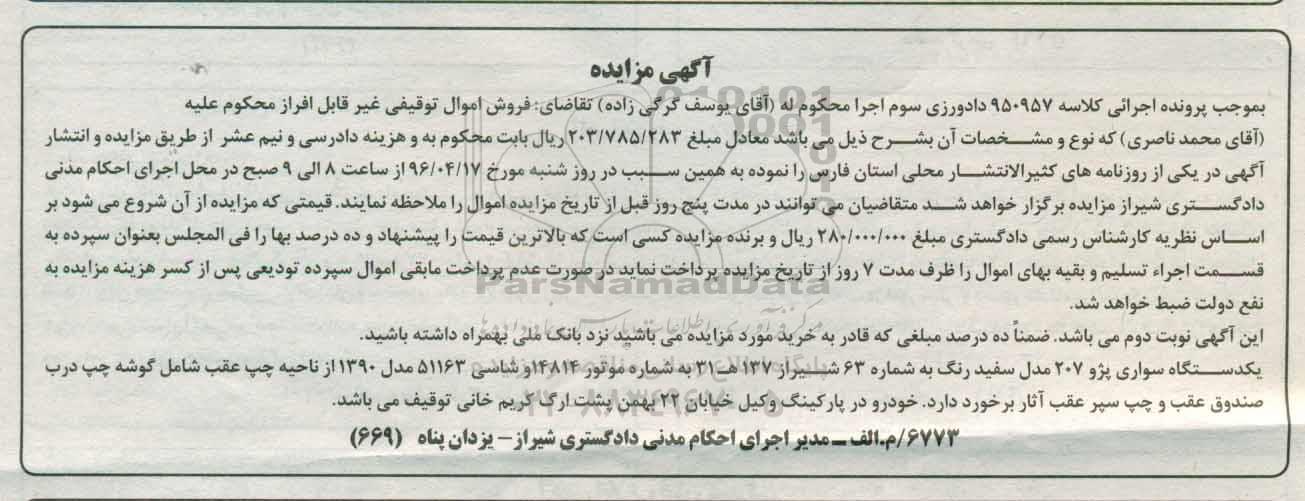 آگهی مزایده
بموجب پرونده اجرائی کلاسه ۹۵۰۹۵۷ دادورزی سوم اجرا محکوم له (آقای یوسف گرگی زاده) تقاضای: فروش اموال توقیفی غیر قابل افراز محکوم علیه
(آقای محمد ناصری) که نوع و مشـخصات آن بشـرح ذیل می باشد معادل مبلغ ۲۰۳/۷۸۵/۲۸۳ ریال بابت محکوم به و هزینه دادرسی و نیم عشر از طریق مزایده و انتشار
آگهی در یکی از روزنامه های کثیرالانتشـار محلی استان فارس را نموده به همین سـبب در روز شنبه مورخ ۹۶/۰۴/۱۷ از ساعت ۸ الی ۹ صبح در محل اجرای احکام مدنی
دادگسـتری شیراز مزایده برگزار خواهد شـد متقاضیان می توانند در مدت پنج روز قبل از تاریخ مزایده اموال را ملاحظه نمایند. قیمتی که مزایده از آن شروع می شود بر
اسـاس نظریه کارشناس رسمی دادگستری مبلغ ۲۸۰/۰۰۰/۰۰۰ ریال و برنده مزایده کسی است که بالاترین قیمت را پیشنهاد و ده درصد بها را فی المجلس بعنوان سپرده به
قسـمت اجراء تسلیم و بقیه بهای اموال را ظرف مدت ۷ روز از تاریخ مزایده پرداخت نماید در صورت عدم پرداخت مابقی اموال سپرده تودیعی پس از کسر هزینه مزایده به
نفع دولت ضبط خواهد شد.
ParsNamadData
این آگهی نوبت دوم می باشد. ضمناً ده درصد مبلغی که قادر به خرید مورد مزایده می باشید نزد بانک ملی بهمراه داشته باشید.
یکدسـتگاه سواری پژو ۲۰۷ مدل سفید رنگ به شماره ۶۳ شـیراز ۱۳۷ هـ۳۱ به شماره موتور ۱۴۸۱۴و شاسی ۵۱۱۶۳ مدل ۱۳۹۰ از ناحیه چپ عقب شامل گوشه چپ درب
صندوق عقب و چپ سپر عقب آثار برخورد دارد. خودرو در پارکینگ وکیل خیابان ۲۲ بهمن پشت ارگ کریم خانی توقیف می باشد.
۶۷۷۳/م.الف ــ مدیر اجرای احکام مدنی دادگستری شیراز– یزدان پناه (۶۶۹)